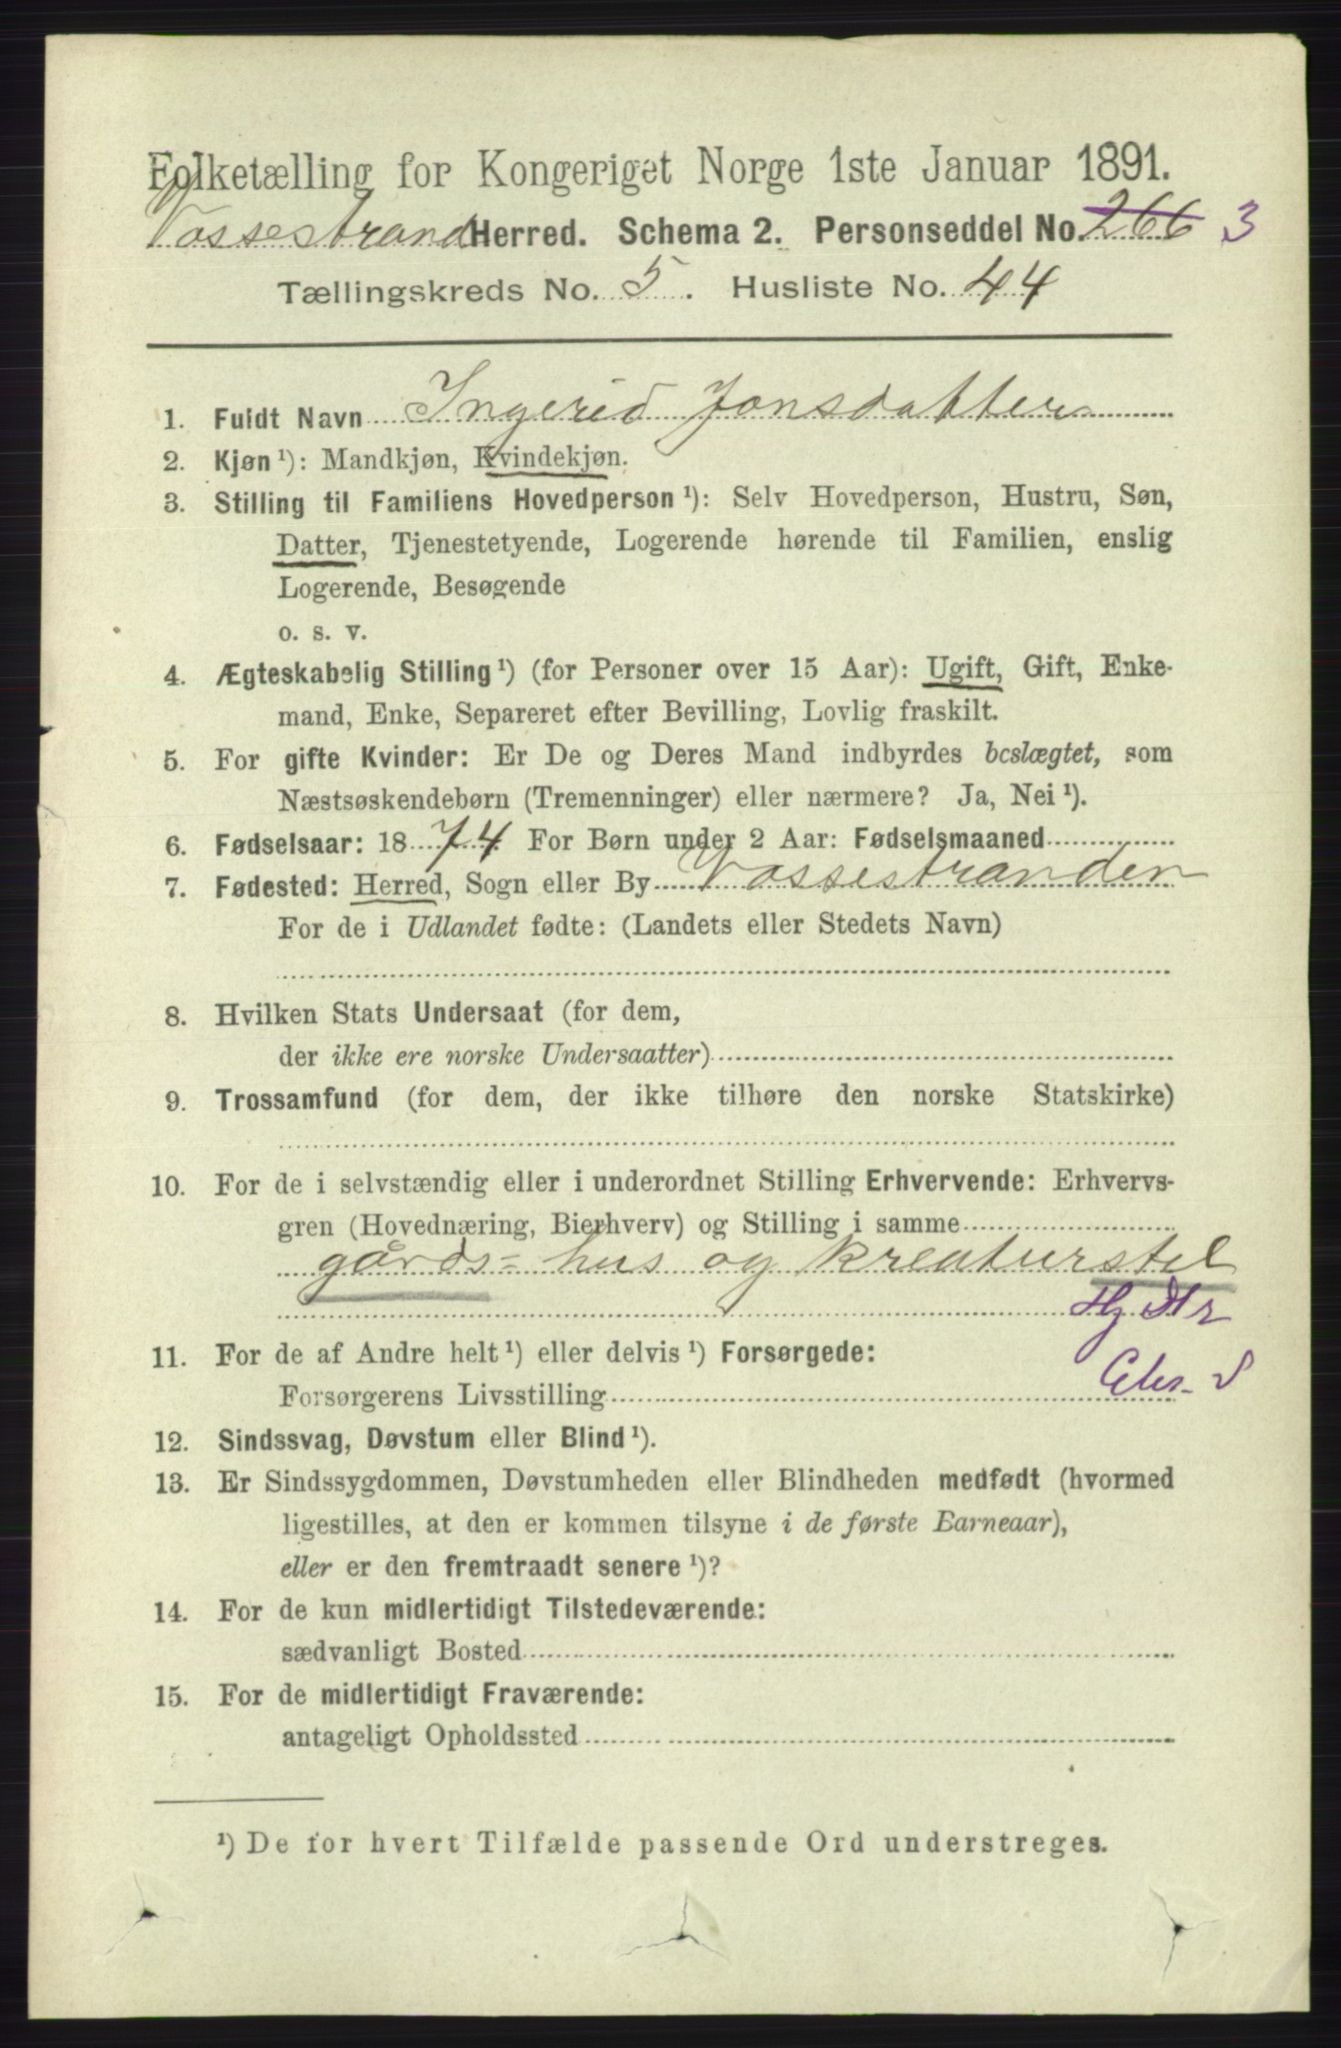 Folketælling for Kongeriget Norge 1ste Januar 1891.
Vossestrand Herred. Schema 2. Personseddel No. 266 3
Tællingskreds No. 5. Husliste No. 44
1. Fuldt Navn Ingerid Jonsdatter
2. Kjøn ¹): Mandkjøn, Kvindekjøn.
3. Stilling til Familiens Hovedperson ¹): Selv Hovedperson, Hustru, Søn,
Datter, Tjenestetyende, Logerende hørende til Familien, enslig
Logerende, Besøgende
o. s. v.
4. Ægteskabelig Stilling ¹) (for Personer over 15 Aar): Ugift, Gift, Enke-
mand, Enke, Separeret efter Bevilling, Lovlig fraskilt.
5. For gifte Kvinder: Er De og Deres Mand indbyrdes beslægtet, som
Næstsøskendebørn (Tremenninger) eller nærmere? Ja, Nei ¹).
6. Fødselsaar: 1874 For Børn under 2 Aar: Fødselsmaaned
7. Fødested: Herred, Sogn eller By Vossestranden
For de i Udlandet fødte: (Landets eller Stedets Navn)
8. Hvilken Stats Undersaat (for dem,
der ikke ere norske Undersaatter)
9. Trossamfund (for dem, der ikke tilhøre den norske Statskirke)
10. For de i selvstændig eller i underordnet Stilling Erhvervende: Erhvervs-
gren (Hovednæring, Bierhverv) og Stilling i samme
gårds- hus og kreaturstel
Hj Dtr
11. For de af Andre helt ¹) eller delvis ¹) Forsørgede:
Forsørgerens Livsstilling
12. Sindssvag, Døvstum eller Blind ¹).
13. Er Sindssygdommen, Døvstumheden eller Blindheden medfødt (hvormed
ligestilles, at den er kommen tilsyne i de første Barneaar),
eller er den fremtraadt senere ¹)?
14. For de kun midlertidigt Tilstedeværende:
sædvanligt Bosted
15. For de midlertidigt Fraværende:
antageligt Opholdssted
¹) De for hvert Tilfælde passende Ord understreges.